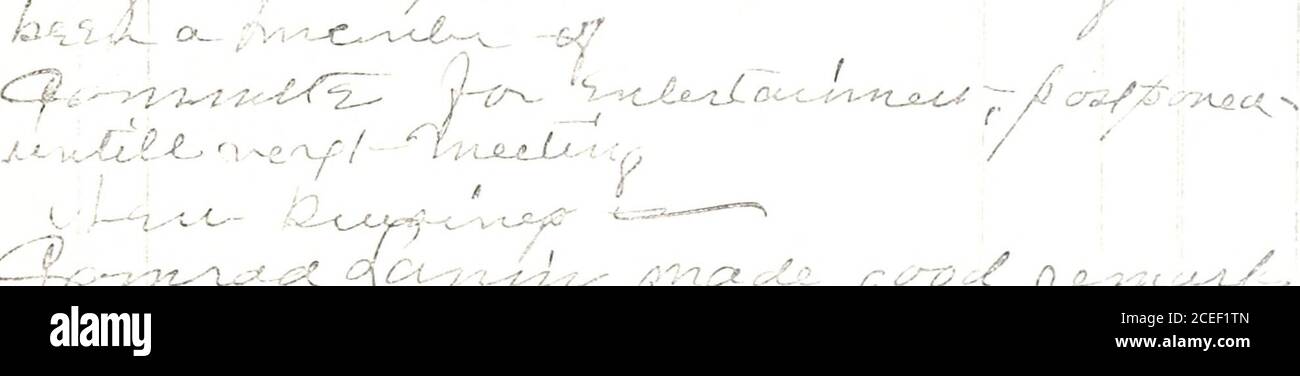 been a member of
Committe for Entertainment, postponed
untill next meeting
New Bussiness
Comrad Lamm made good remark
alamy
Image ID: 2CEF1TN
www.alamy.com